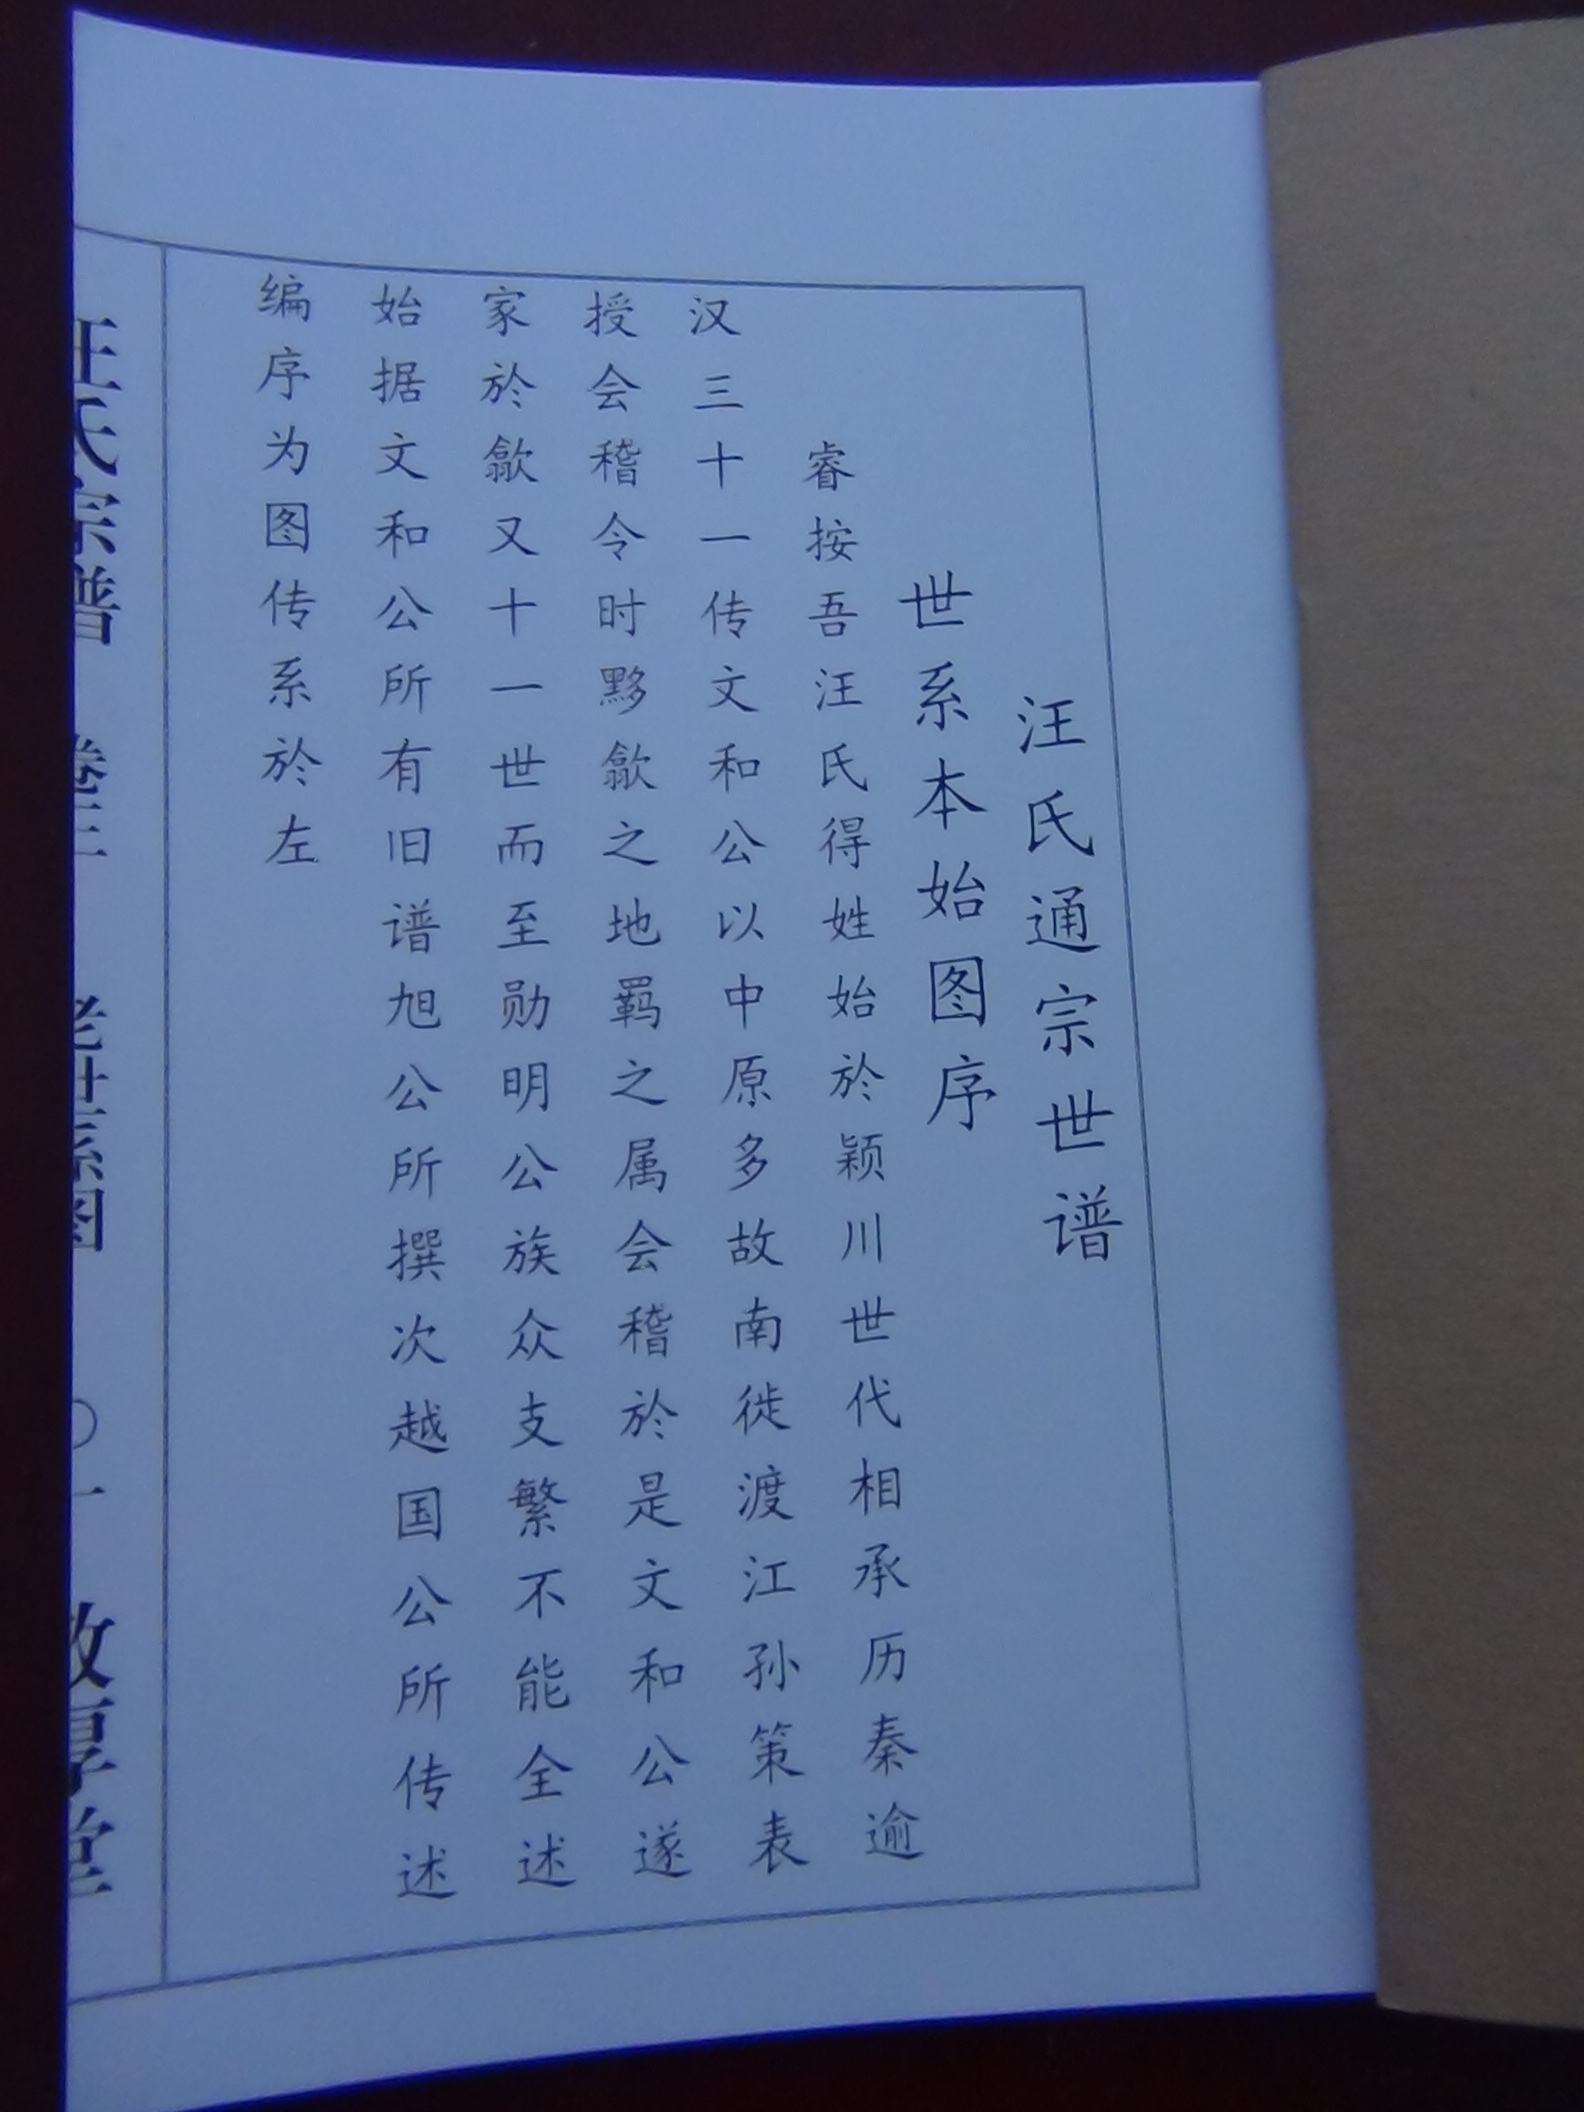 汪氏通宗世谱
世系本始图序
睿按吾汪氏得姓始於颖川世代相承历秦逾
汉三十一传文和公以中原多故南徙渡江孙策表
授会稽令时黟歙之地羁之属会稽於是文和公遂
家於歙又十一世而至勋明公族众支繁不能全述
始据文和公所有旧谱旭公所撰次越国公所传述
编序为图传系於左
汪氏宗谱 卷三 老世系图 〇一 敦厚堂